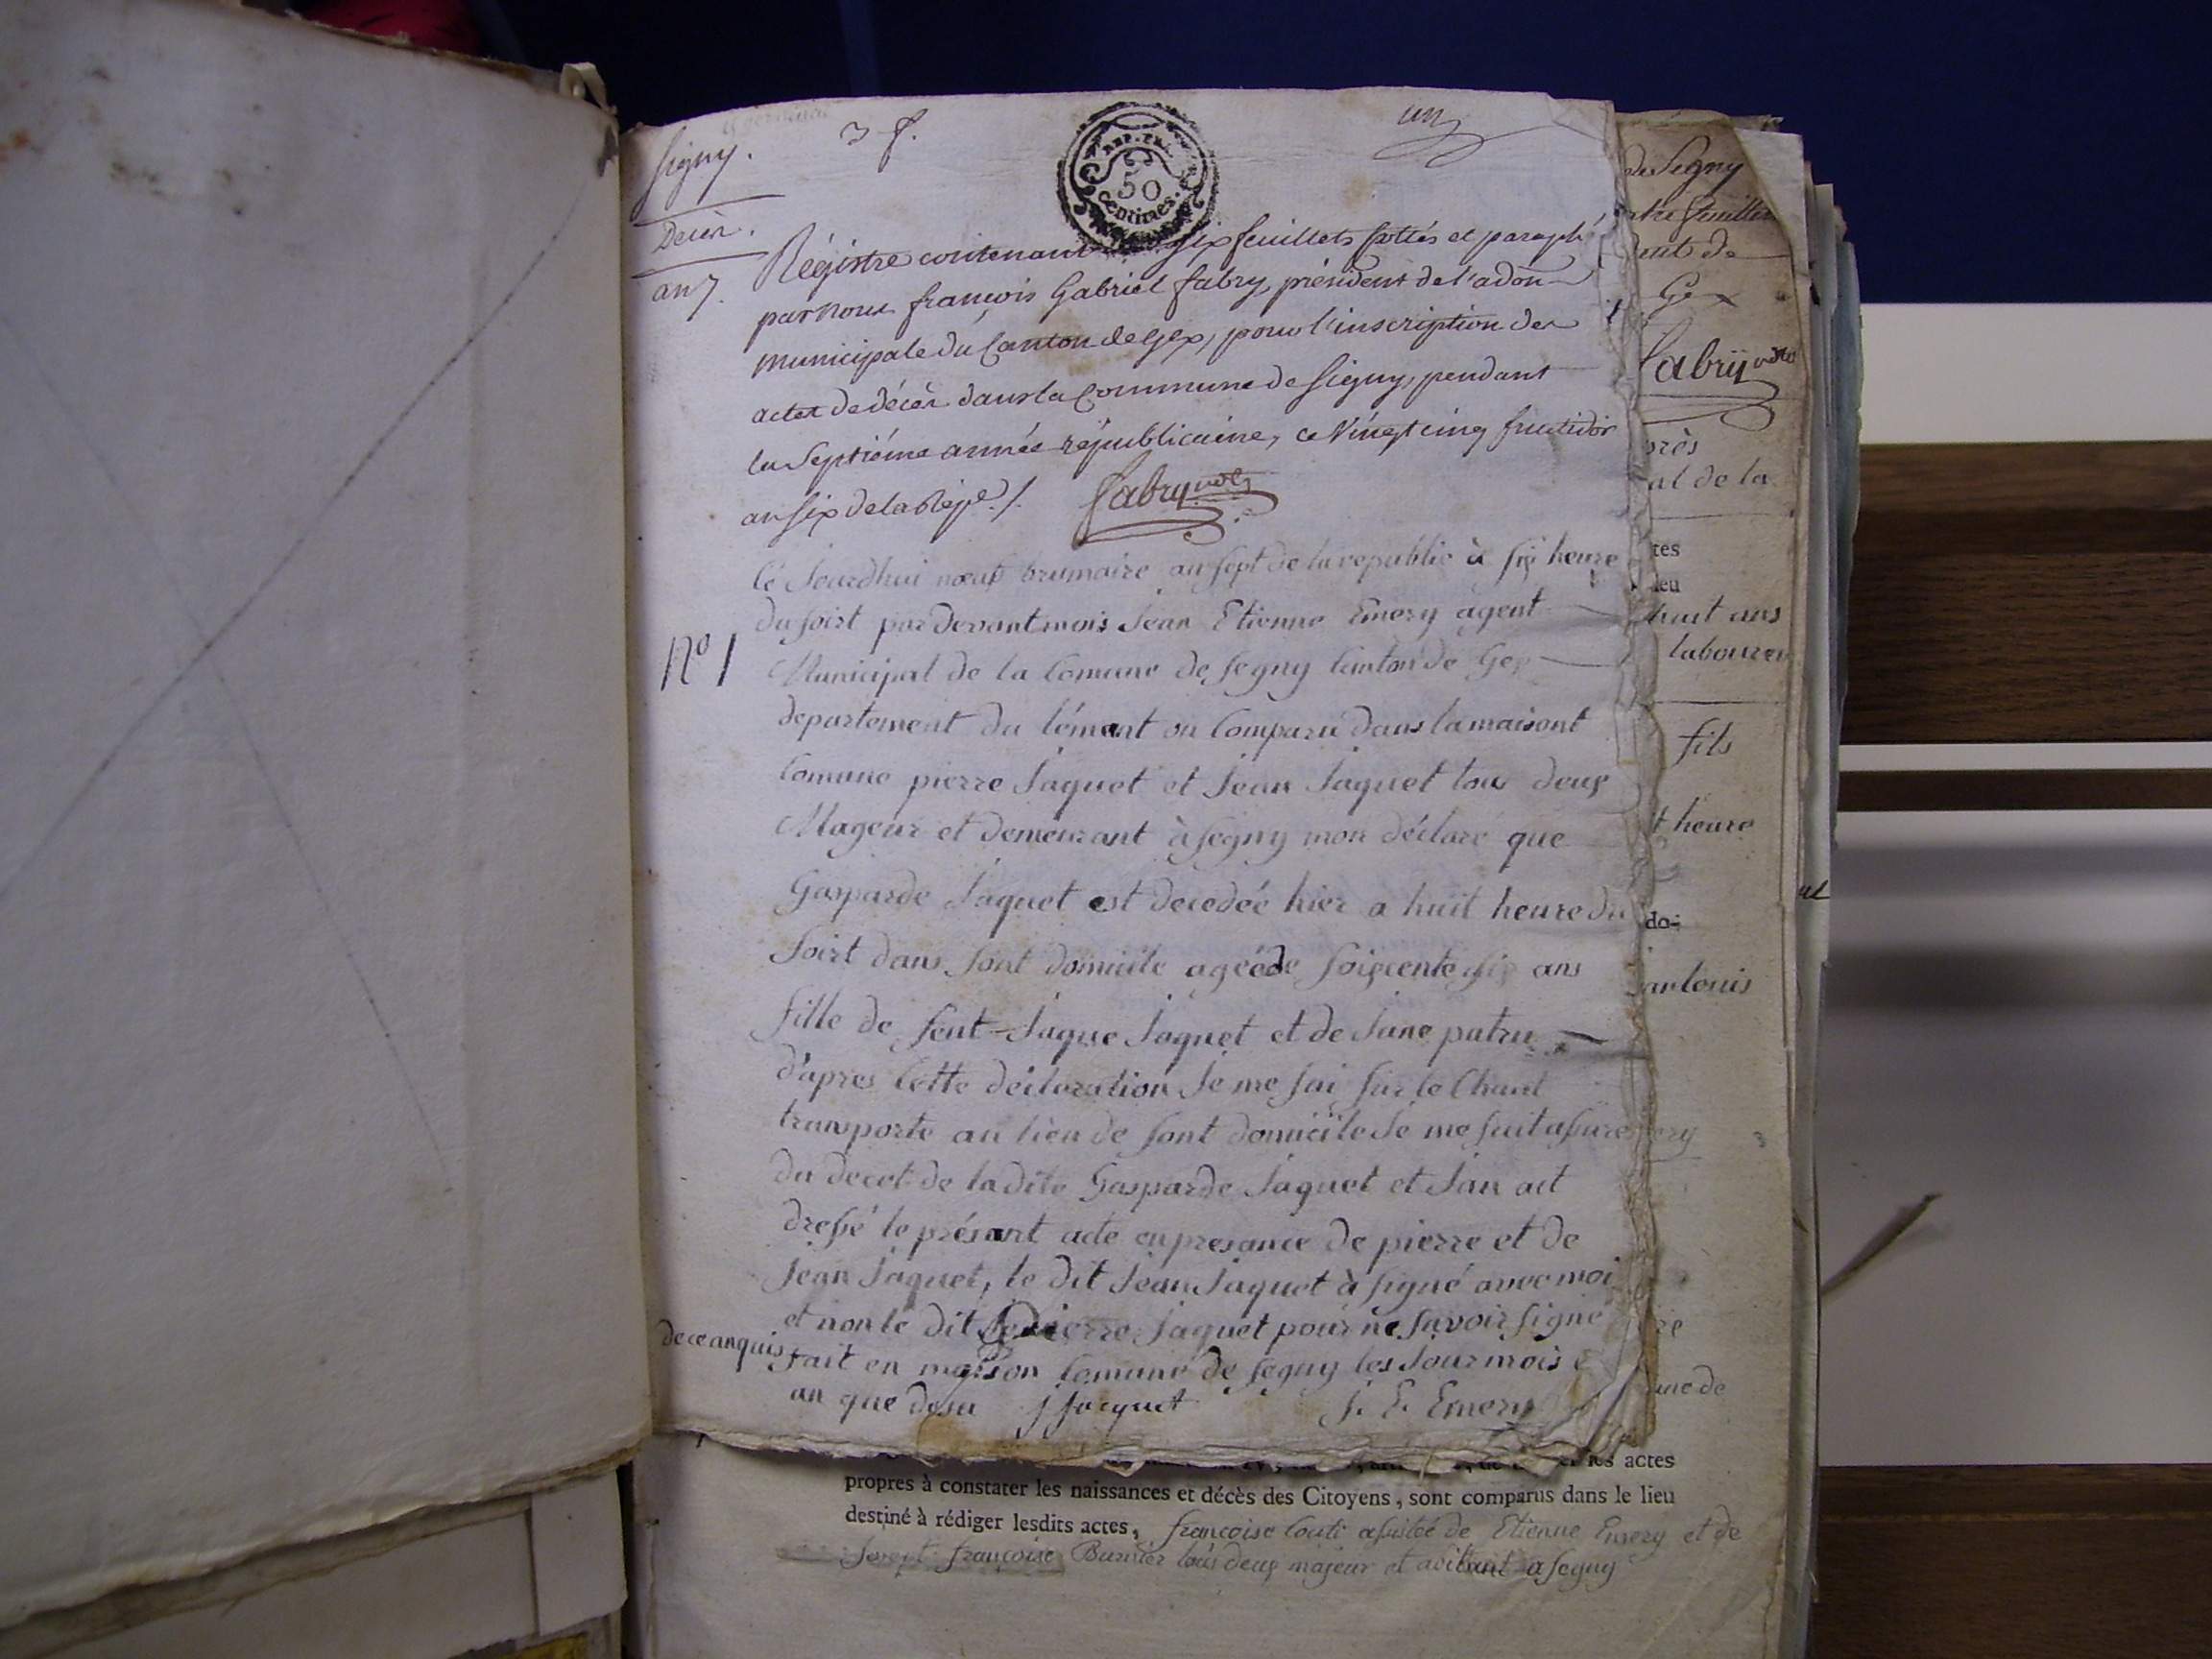 Segny.
3 f.
un
REP. FRA.
50
centimes.
Décès.
an 7.
Régistre contenant six feuillets cottés et paraphé
par nous françois Gabriel fabry, président de l'adon
municipale du Canton de Gex, pour l'inscription des
actes de décès dans la Commune de Segny, pendant
la septiéme année républicaine, ce Vingt cinq fructidor
an six de la Rép.e /. fabry
Ce Jourdhui neuf brumaire an sept de la republic à six heure
du soirt par devant mois Jean Etienne Emery agent
N° 1
Municipal de la Comune de Segny Canton de Gex
departement du lémant on Comparu dans la maisont
Comune pierre Jaquet et Jean Jaquet tou deux
Mageur et demeurant à Segny mon déclaré que
Gasparde Jaquet est decedée hier a huit heure du
soirt dans sont domicile agéede soixcente six ans
fille de feut Jaque Jaquet et de Jane patru
d'apres Cette déclaration Je me sui sur le Chant
transporte au lieu de sont domicile Je me suit assure
du decet de la dite Gasparde Jaquet et Jan ait
dressé le présant acte en presance de pierre et de
Jean Jaquet, le dit Jean Jaquet à signé avec moi
et non le dit pierre Jaquet pour ne savoir signé
de ce anquis
fait en maison Comune de Segny les Jour mois
an que desu J Jacquet J. E. Emery
de Segny
feuillet
Gex
fabry
près
al de la
tes
lieu
huit ans
laboureu
fils
t heure
do-
an louis
une de
les actes
propres à constater les naissances et décès des Citoyens, sont comparus dans le lieu
destiné à rédiger lesdits actes, françoise assistée de Etienne Emery et de
françoise Burnier tous deux majeur et abitant a Segny